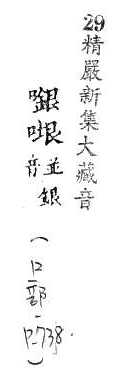 29精嚴新集大藏音
並音銀
(口部-P.738.)